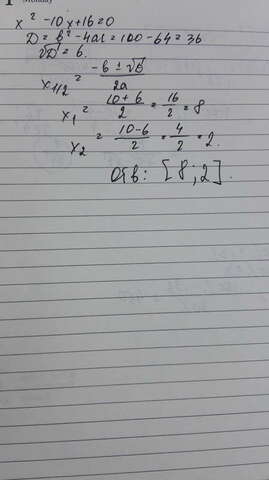 Monday
x² -10x+16=0
D = b² -4ac = 100 - 64 = 36
√D = 6.
x1/2 = -b ± √D / 2a
x1 = 10+6 / 2 = 16 / 2 = 8
x2 = 10-6 / 2 = 4 / 2 = 2.
Отв: [8;2].